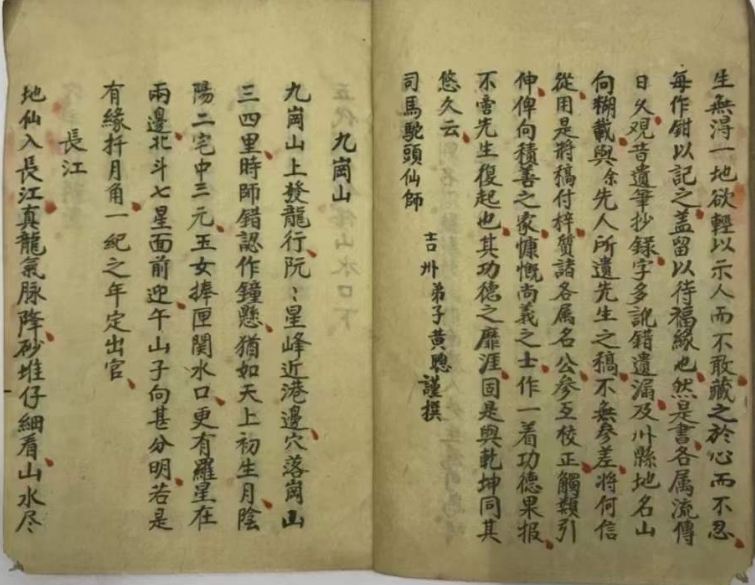 生無淂一地欲輕以示人而不敢藏之於心而不忍
每作鉗以記之蓋留以待福緣也然是書各属流傳
日久覌昔遺筆抄錄字多訛錯遺漏及州縣地名山
向糊載與余先人所遺先生之稿不無參差将何信
從用是将稿付梓質諸各属名公參互校正觸類引
伸俾向積善之家慷慨尚義之士作一着功德果报
不啻先生復起也其功德之靡涯固是與乾坤同其
悠久云
吉州弟子黄聰謹撰
司馬駝頭仙師
九崗山
九崗山上發龍行阮〻星峰近港邊穴落崗山
三四里時師錯認作鐘懸猶如天上初生月陰
陽二宅中三元玉女捧匣関水口更有羅星在
兩邊北斗七星面前迎午山子向甚分明若是
有緣扦月角一紀之年定出官
長江
地仙入長江真龍氣脉降砂堆仔細看山水尽